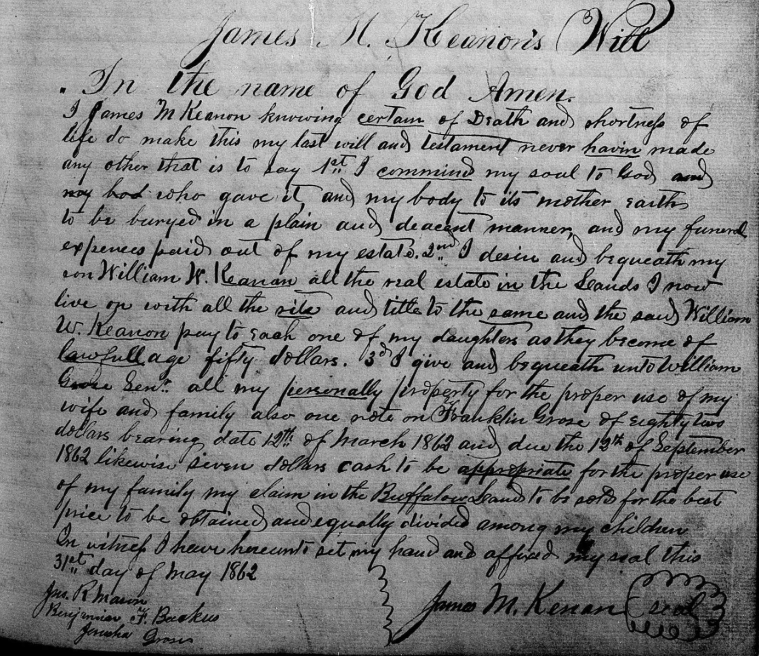 James M. Keanon's Will
In the name of God Amen.
I James M Keanon knowing certain of Death and shortness of
life do make this my last will and testament never havin made
any other that is to say 1st I commind my soul to God and
my bod who gave it, and my body to its mother earth
to be buryed in a plain and deacent manner, and my funeral
expences paid out of my estate. 2nd I desire and bequeath my
son William W. Keanan all the real estate in the Lands I now
live on with all the rite and title to the same and the said William
W. Keanon pay to each one of my daughters as they become of
lawfull age fifty dollars. 3d I give and bequeath unto William
Grose Senr. all my personally property for the proper use of my
wife and family also one note on Franklin Grose of eighty two
dollars bearing date 12th of March 1862 and due the 12th of September
1862 likewise seven dollars cash to be appropriate for the proper use
of my family my claim in the Buffalow Land to be sold for the best
price to be obtained and equally divided among my children
In witness I have hereunto set my hand and affixed my seal this
31st day of May 1862
James M. Kenan seal
Jas. R Mason
Benjamin F. Backus
Grose